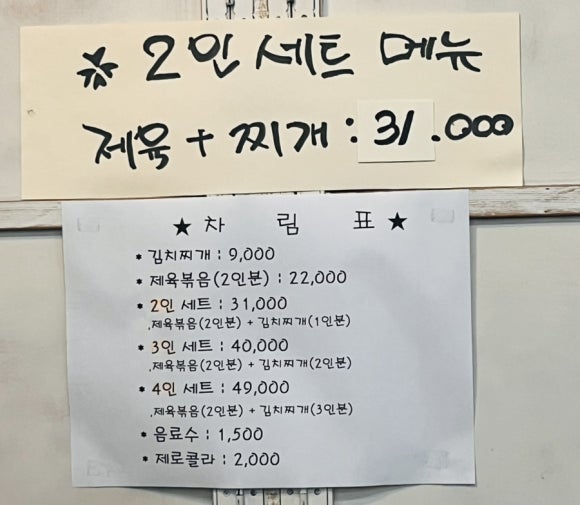 * 2인 세트 메뉴
제육 + 찌개 : 31.000
★ 차 림 표 ★
* 김치찌개 : 9,000
* 제육볶음(2인분) : 22,000
* 2인 세트 : 31,000
.제육볶음(2인분) + 김치찌개(1인분)
* 3인 세트 : 40,000
.제육볶음(2인분) + 김치찌개(2인분)
* 4인 세트 : 49,000
.제육볶음(2인분) + 김치찌개(3인분)
* 음료수 : 1,500
* 제로콜라 : 2,000